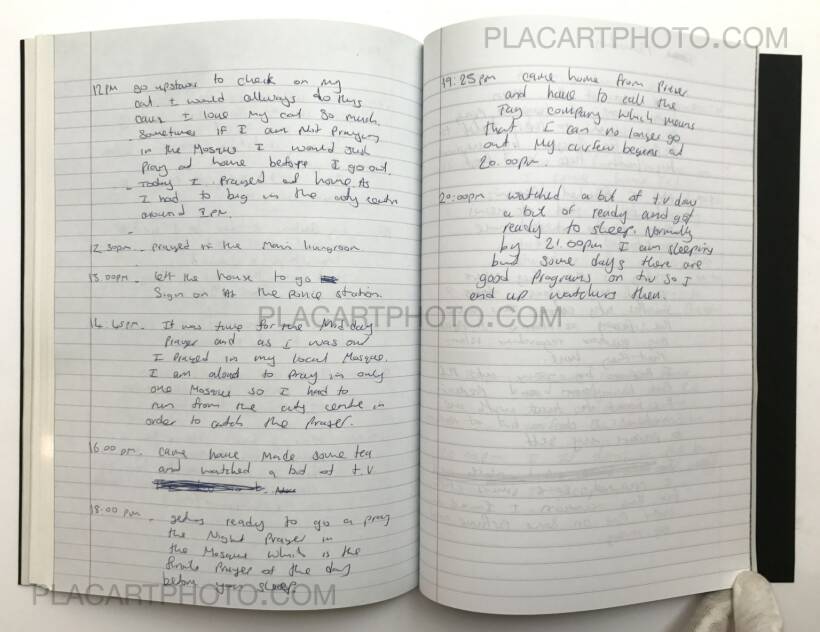 PLACARTPHOTO.COM
12PM go upstairs to check on my
cat. I would allways do this
cause I love my cat so much.
- Sometimes if I am not Praying
in the Mosque I would Just
Pray at home before I go out.
- Today I Prayed at home As
I had to be in the city centre
around 1PM.
12.30pm - Prayed in the Main livingroom
13.00pm - left the house to go
Sign on At the police station.
14.45pm - It was time for the Mid day
Prayer and as I was out
I Prayed in my local Mosque.
I am aloud to Pray in only
one Mosque so I had to
run from the city centre in
order to catch the Prayer.
16.00pm. came home Made some tea
and watched a bit of t.v
18.00 pm - getting ready to go a pray
the Night Prayer in
the Mosque which is the
Prayer of the day
before you sleep.
19:25pm came home from Prayer
and have to call the
Tag company which means
that I can no longer go
out. My curfew begins at
20.00pm.
20:00pm watched a bit of t.v day
a bit of ready and get
ready to sleep. Normally
by 21.00pm I am sleeping
but some days there are
good Programs on tv so I
end up watching them.
PLACARTPHOTO.COM
PLACARTPHOTO.COM
PLACARTPHOTO.COM